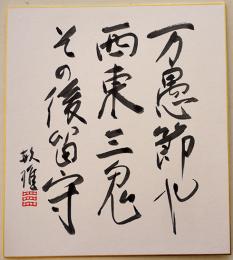 万愚節や
西東三鬼
その後留守
敏雄